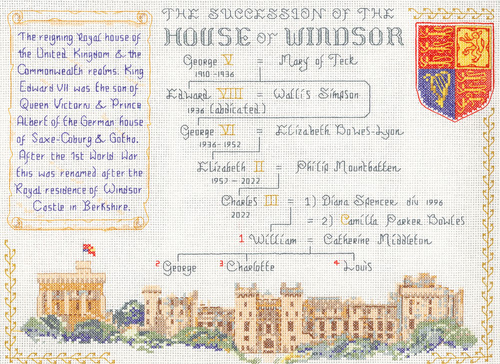 THE SUCCESSION OF THE
HOUSE OF WINDSOR
The reigning Royal house of
the United Kingdom & the
Commonwealth realms. King
Edward VII was the son of
Queen Victoria & Prince
Albert of the German house
of Saxe-Coburg & Gotha.
After the 1st World War
this was renamed after the
Royal residence of Windsor
Castle in Berkshire.
George V = Mary of Teck
1910-1936
Edward VIII = Wallis Simpson
1936 (abdicated)
George VI = Elizabeth Bowes-Lyon
1936-1952
Elizabeth II = Philip Mountbatten
1952-2022
Charles III = 1) Diana Spencer div 1996
2022 = 2) Camilla Parker Bowles
1 William = Catherine Middleton
2 George 3 Charlotte 4 Louis